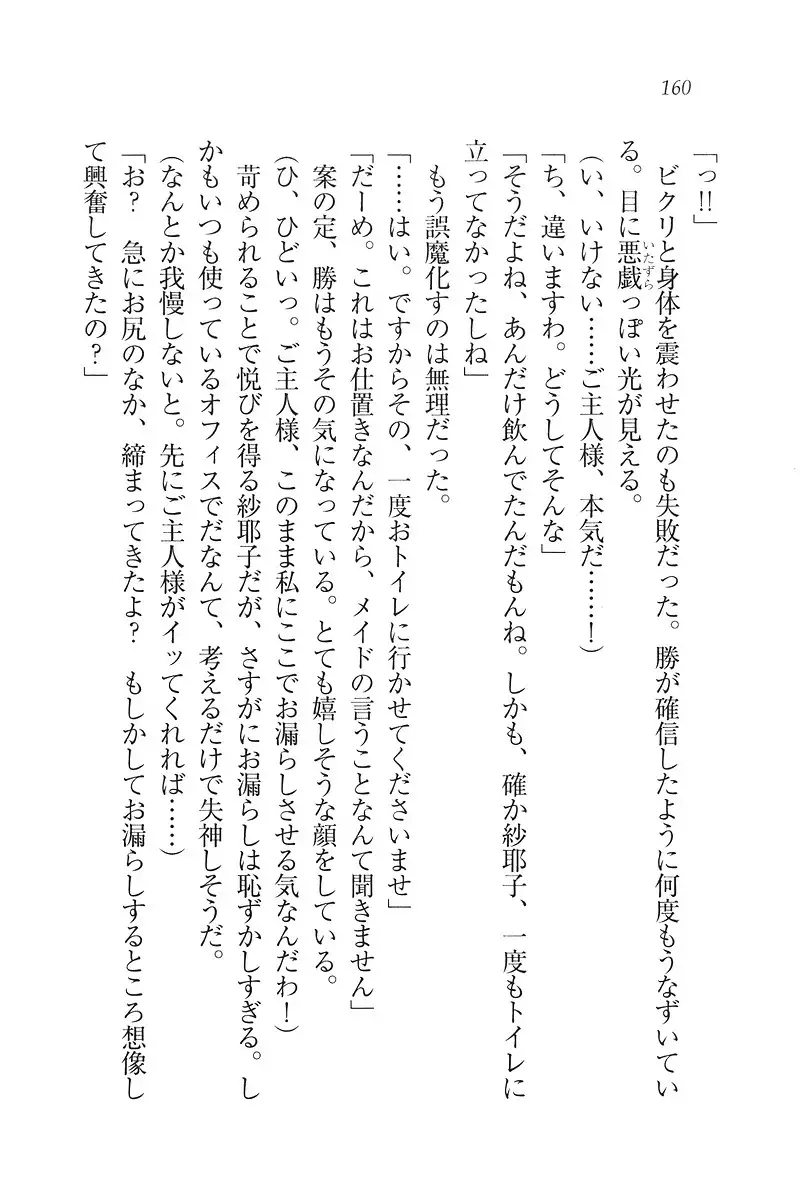 160
「っ!!」
ビクリと身体を震わせたのも失敗だった。勝が確信したように何度もうなずいてい
る。目に悪戯っぽい光が見える。
いたずら
(い、いけない……ご主人様、本気だ……!)
「ち、違いますわ。どうしてそんな」
「そうだよね、あんだけ飲んでたんだもんね。しかも、確か紗耶子、一度もトイレに
立ってなかったしね」
もう誤魔化すのは無理だった。
「……はい。ですからその、一度おトイレに行かせてくださいませ」
「だーめ。これはお仕置きなんだから、メイドの言うことなんて聞きません」
案の定、勝はもうその気になっている。とても嬉しそうな顔をしている。
(ひ、ひどいっ。ご主人様、このまま私にここでお漏らしさせる気なんだわ!)
苛められることで悦びを得る紗耶子だが、さすがにお漏らしは恥ずかしすぎる。し
かもいつも使っているオフィスでだなんて、考えるだけで失神しそうだ。
(なんとか我慢しないと。先にご主人様がイッてくれれば……)
「お? 急にお尻のなか、締まってきたよ? もしかしてお漏らしするところ想像し
て興奮してきたの?」